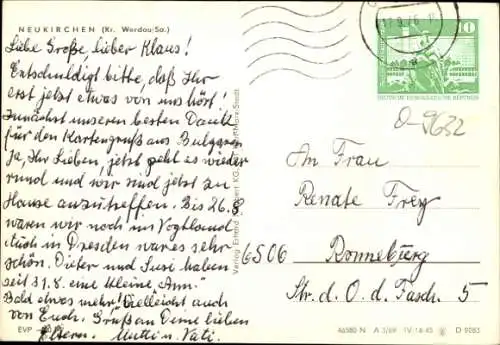 NEUKIRCHEN (Kr. Werdau/Sa.)
Liebe Große, lieber Klaus!
Entschuldigt bitte, daß Ihr
erst jetzt etwas von uns hört!
Zunächst unseren besten Dank
für den Kartengruß aus Bulgarien
Ja, Ihr Lieben, jetzt geht es wieder
rund und wir sind jetzt zu
Hause anzutreffen. Bis 26.8
waren wir noch im Vogtland
Auch in Dresden war es sehr
schön. Dieter und Susi haben
seit 31.8. eine kleine "Ann."
Bald etwas mehr! Vielleicht auch
von Euch. Grüß an Deine lieben
Eltern. Mutti u. Vati.
EVP
Verlag Erhard
10
DEUTSCHE DEMOKRATISCHE REPUBLIK
0-9632
An Frau
Renate Frey
6506 Ronneburg
Str. d. O. d. Fasch. 5
46580 N A 3/69 IV-14-45 D 9083